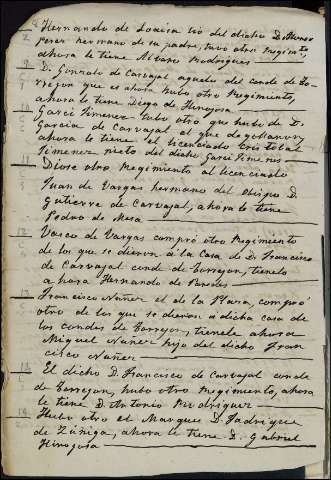 8 Hernando de Loaisa tio del dicho D. Alonso
perez hermano de su padre, tuvo otro Regimto,
ahora le tiene Alvaro Rodrigues
9 D. Gonzalo de Carvajal aguelo del conde de To-
rrejon que es ahora hubo otro Regimiento,
ahora le tiene Diego de Hinojosa
10 Garci Jimenez tubo otro que hubo de D.
Garcia de Carvajal el que degollaron,
ahora le tiene el licenciado Cristobal
Jimenez nieto del dicho Garci Jimenes
11 Diose otro Regimiento al licenciado
Juan de Vargas hermano del Obispo D.
Gutierre de Carvajal, ahora le tiene
Pedro de Mesa
12 Vasco de Vargas compró otro Regimiento
de los que se dieron á la Casa de D. Francisco
de Carvajal conde de Torrejon, tienelo
ahora Hernando de Paredes
13 Francisco Nuñez el de la Plaza, compró
otro de los que se dieron a dicha casa de
los condes de Torrejon, tienele ahora
Miguel Nuñez hijo del dicho Fran
cisco Nuñez
14 El dicho D. Francisco de Carvajal conde
de Torrejon, hubo otro Regimiento, ahora
le tiene D. Antonio Rodriguez
Hubo otro el Marques D. Fadrique
de Zúñiga, ahora le tiene D. Gabriel
Hinojosa